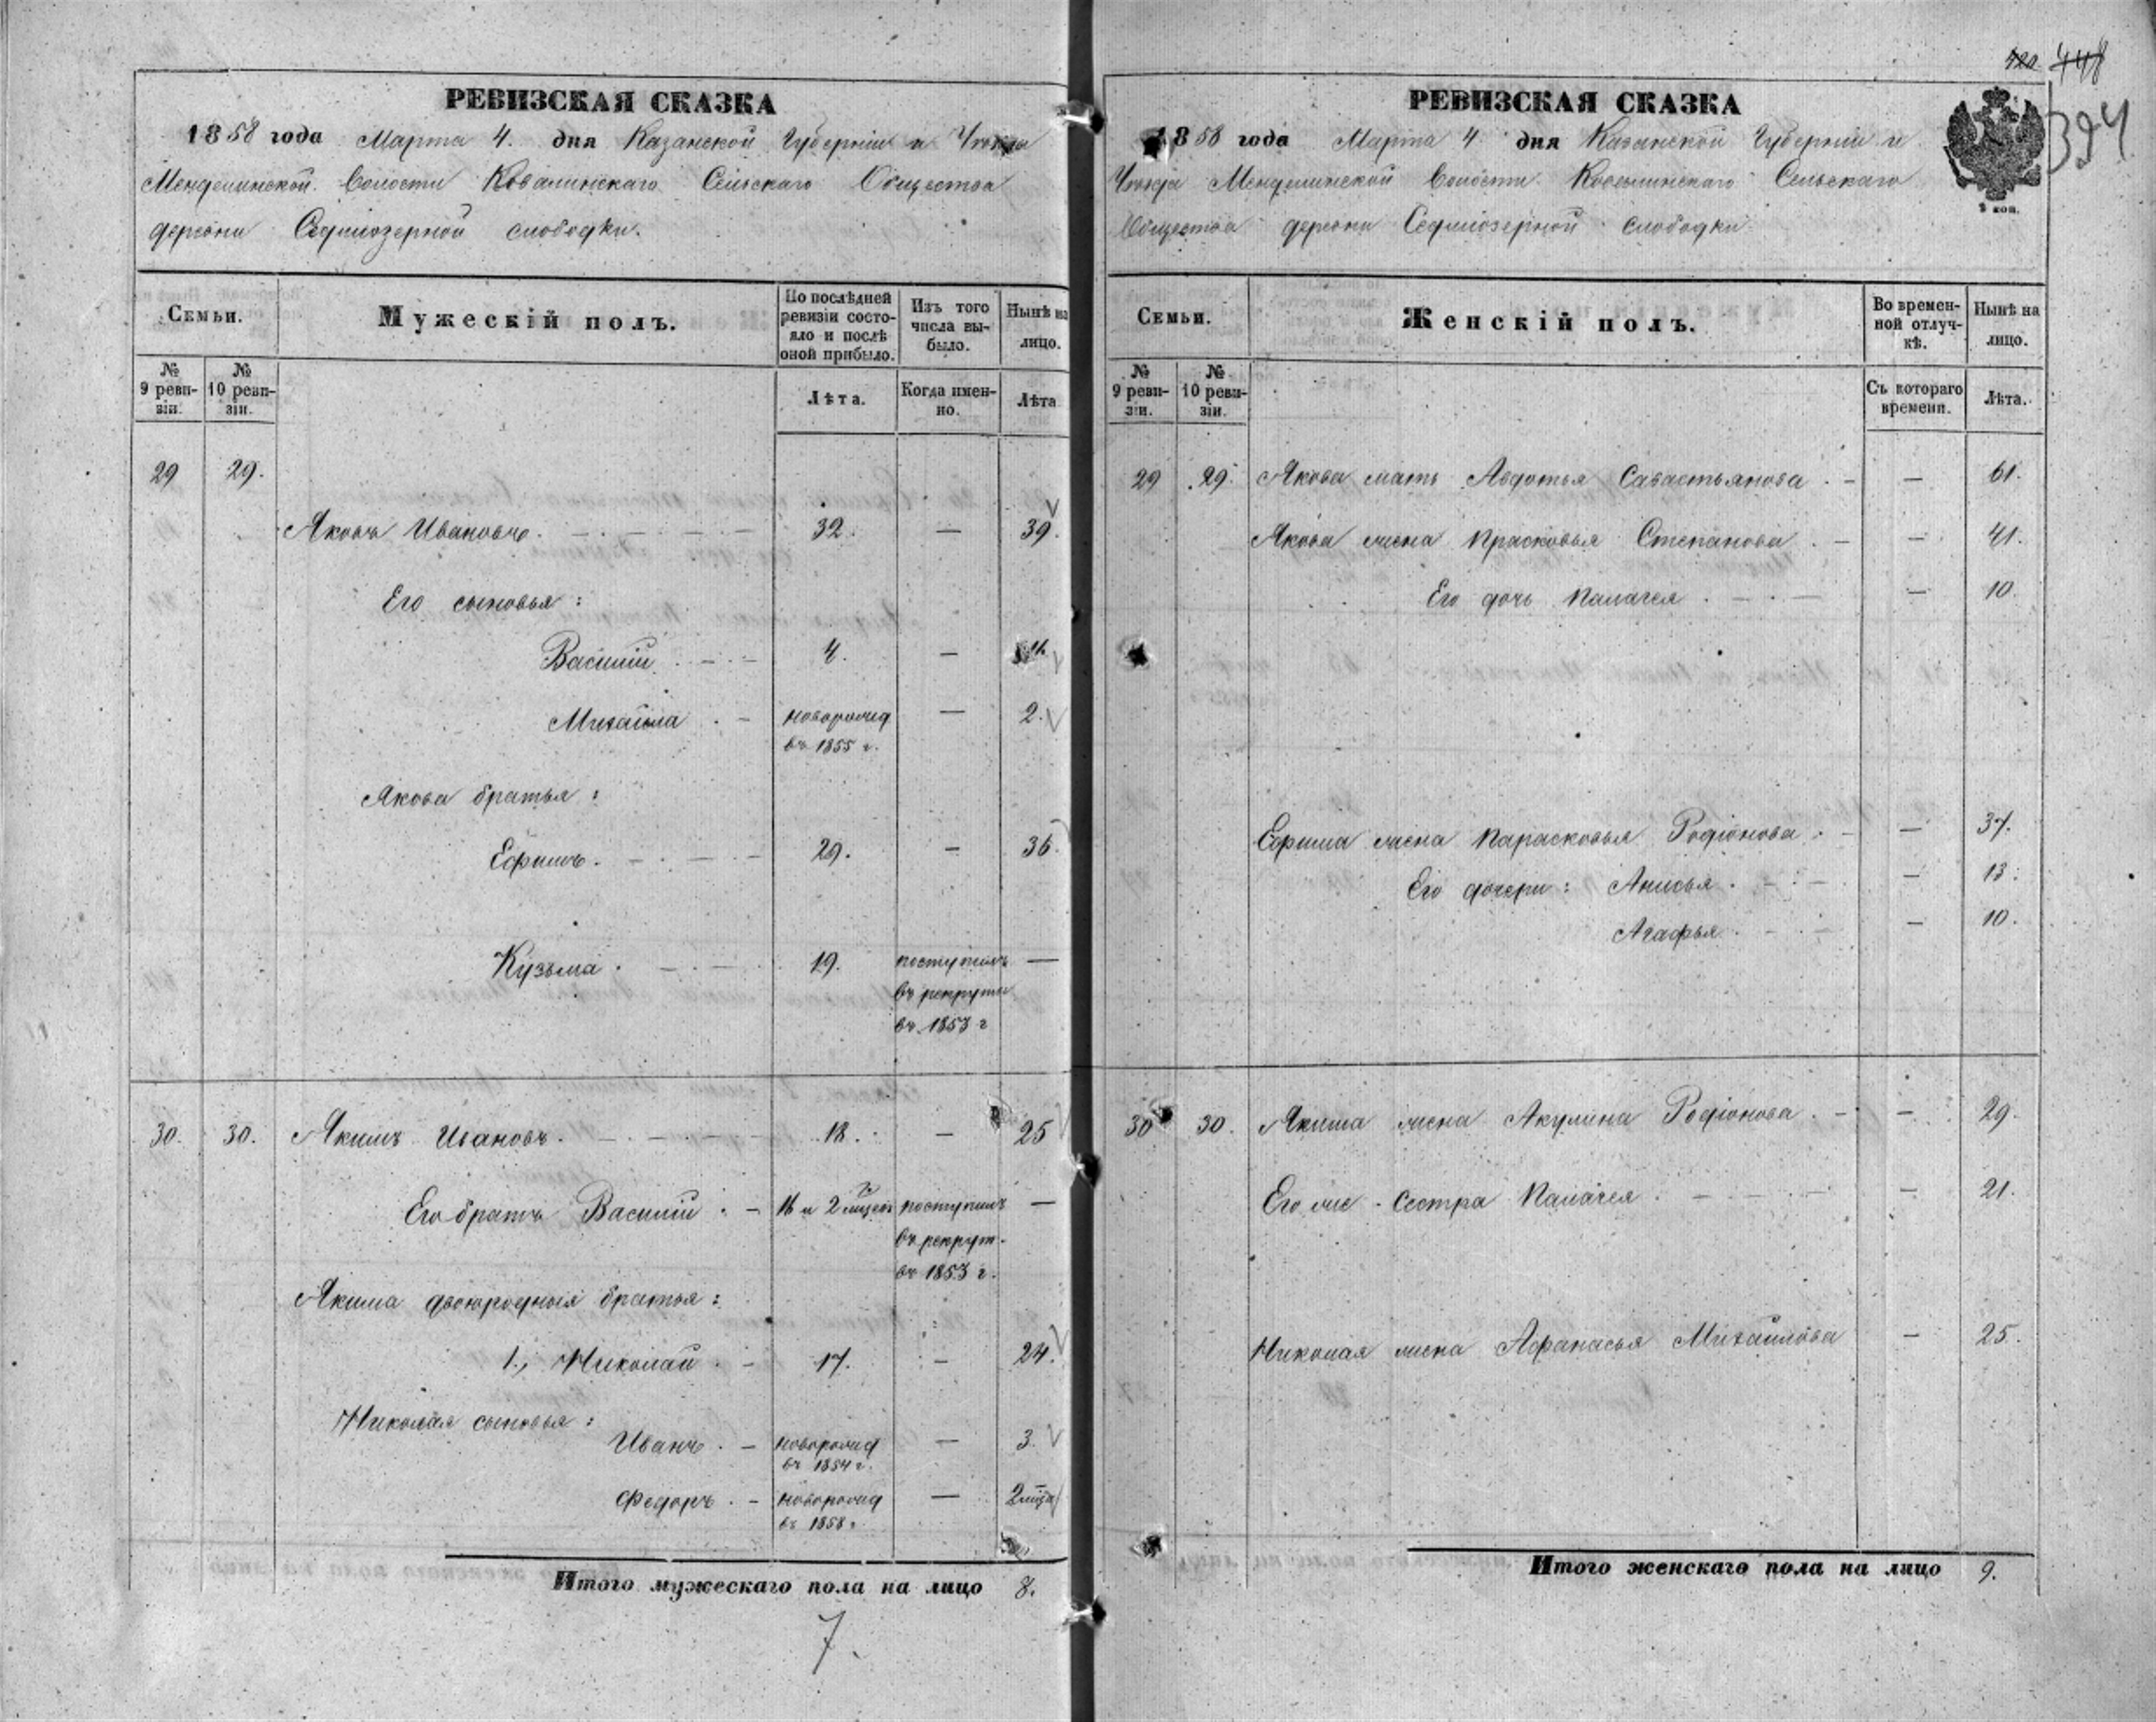 РЕВИЗСКАЯ СКАЗКА
1858 года Марта 4. дня Казанской Губерніи и Уѣзда
Менделинской Волости Ковалинскаго Сельскаго Общества
деревни Седміозерной слободки.
Семьи.
Мужескій полъ.
По послѣдней ревизіи состояло и послѣ оной прибыло.
Изъ того числа выбыло.
Нынѣ на лицо.
№ 9 ревизіи.
№ 10 ревизіи.
Лѣта.
Когда именно.
Лѣта
29 29.
Яковъ Ивановъ. 32. — 39.
Его сыновья:
Василій 4. — 11.
Михайла новорожд — 2.
въ 1855 г.
Якова братья:
Ефимъ. 29. — 36.
Кузьма. 19. поступилъ —
въ рекруты
въ 1853 г
30. 30. Якимъ Ивановъ. 18. — 25
Его братъ Василій 16 и 2 поступилъ —
въ рекрут.
въ 1853 г.
Якима двоюродныя братья:
1., Николай 17. — 24.
Николая сыновья:
Иванъ. новорожд — 3.
въ 1854 г.
Федоръ. новорожд — 2 мца
въ 1858 г
Итого мужескаго пола на лицо 8.
7.
448
394
РЕВИЗСКАЯ СКАЗКА
1858 года Марта 4 дня Казанской Губерніи и
Уѣзда Менделинской Волости Ковалинскаго Сельскаго
Общества деревни Седміозерной слободки.
2 коп.
Семьи.
Женскій полъ.
Во временной отлучкѣ.
Нынѣ на лицо.
№ 9 ревизіи.
№ 10 ревизіи.
Съ котораго времени.
Лѣта.
29 29. Якова мать Авдотья Савастьянова — 61.
Якова жена Прасковья Степанова — 41.
Его дочь Палагея — 10.
Ефима жена Парасковья Родіонова — 37.
Его дочери: Анисья — 13.
Агафья — 10.
30 30. Якима жена Акулина Родіонова — 29.
Его же сестра Палагея — 21.
Николая жена Афанасья Михайлова — 25.
Итого женскаго пола на лицо 9.